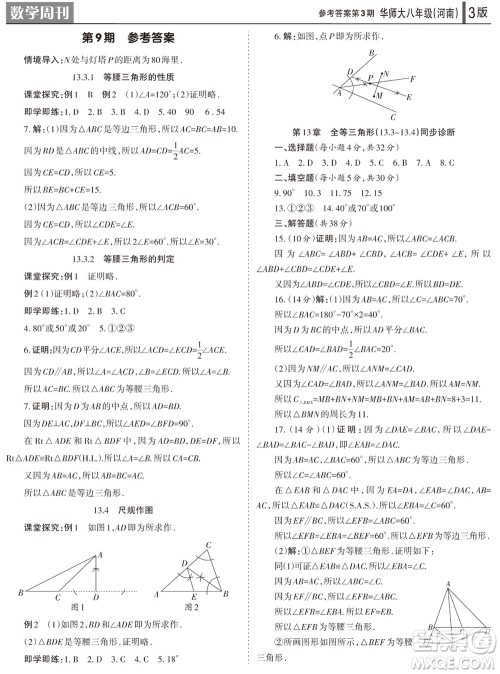 数学周刊
参考答案第3期 华师大八年级(河南) 3版
第9期 参考答案
情境导入:N处与灯塔P的距离为80海里.
13.3.1 等腰三角形的性质
课堂探究:例1 B 例2 (1)∠A=120°;(2)证明略.
即学即练:1.D 2.B 3.D 4.120° 5.90° 6.54
7.解:(1)因为△ABC是等边三角形,所以AC=BC=AB=10.
因为BD是△ABC的中线,所以AD=CD=1/2AC=5.
因为CE=CD,所以CE=5.
所以BE=BC+CE=15.
(2)因为△ABC是等边三角形,所以∠ACB=60°.
因为CE=CD,所以∠CDE=∠E.
因为∠ACB=∠CDE+∠E,所以∠E=30°.
13.3.2 等腰三角形的判定
课堂探究:例1 证明略.
例2 (1)证明略;(2)∠BAC=80°.
即学即练:1.D 2.D 3.①②③
4.80°或50°或20° 5.①②③
6.证明:因为CD平分∠ACE,所以∠ACD=∠ECD=1/2∠ACE.
因为CD∥AB,所以∠ACD=∠A,∠ECD=∠B.
所以∠A=∠B.所以AC=BC.
7.证明:因为D是AB的中点,所以AD=BD.
因为DE⊥AC,DF⊥BC,所以∠AED=∠BFD=90°.
在Rt△ADE和Rt△BDF中,因为AD=BD,DE=DF,所以
Rt△ADE≌Rt△BDF(H.L.).所以∠A=∠B.所以AC=BC.
又因为AB=AC,所以AB=BC=AC.
所以△ABC是等边三角形.
13.4 尺规作图
课堂探究:例1 如图1,AD即为所求作.
A
B
C
图1
A
E
B
D
C
图2
例2 (1)如图2,BD即为所求作.
(2)△BDE是等腰三角形.证明略.
即学即练:1.D 2.D 3.A 4.①②③ 5.等腰三角形
6.解:如图,点P即为所求作.
第13章 全等三角形(13.3~13.4)同步诊断
一、选择题(每小题4分,共32分)
1.A 2.D 3.D 4.C 5.B 6.D 7.A 8.C
二、填空题(每小题5分,共30分)
9.90° 10.3 11.75 12.15
13.①②③ 14.40°或70°或100°
三、解答题(共38分)
15.(10分)证明:因为AB=AC,所以∠ABC=∠ACB.
因为∠ABC=∠ABD+∠CBD,∠ACB=∠ABD,所以
∠ACB=∠ABD+∠CBD.
又因为∠BDC=∠A+∠ABD,所以∠A=∠CBD.
16.(14分)解:(1)因为AB=AC,所以∠ABC=∠C=70°.
所以∠BAC=180°-70°×2=40°.
因为D是BC的中点,所以∠BAD=1/2∠BAC=20°.
(2)因为NM∥AC,所以∠ANM=∠NAC.
又因为∠BAD=∠NAC,所以∠ANM=∠BAD.所以AM=NM.
所以C△BMN=MB+BN+NM=MB+BN+AM=AB+BN=8+3=11.
所以△BMN的周长为11.
17.(14分)(1)证明:因为AB=AC,所以∠ABC=∠ACB.
因为EF∥BC,所以∠EAB=∠ABC,∠CAF=∠ACB.
所以∠EAB=∠CAF.
在△EAD和△FAD中,因为EA=DA,∠EAD=∠FAD,AD=
AD,所以△EAD≌△FAD(S.A.S.).所以∠AED=∠AFD.
因为EF∥BC,所以∠AED=∠EDB,∠AFD=∠FDC.
所以∠EDB=∠FDC.
(2)解:①△DEF是等腰三角形.理由如下:
同(1)可证∠EAB=∠CAF.
因为∠BAD=∠CAD,所以∠EAB+
∠BAD=∠CAF+∠CAD,即∠EAD=∠FAD.
又因为EA=FA,AD=AD,所以△EAD≌
△FAD(S.A.S.).所以ED=FD.
所以△DEF是等腰三角形.
②所画图形如图所示,△DEF是等腰
三角形.
A
E
F
B
D
C